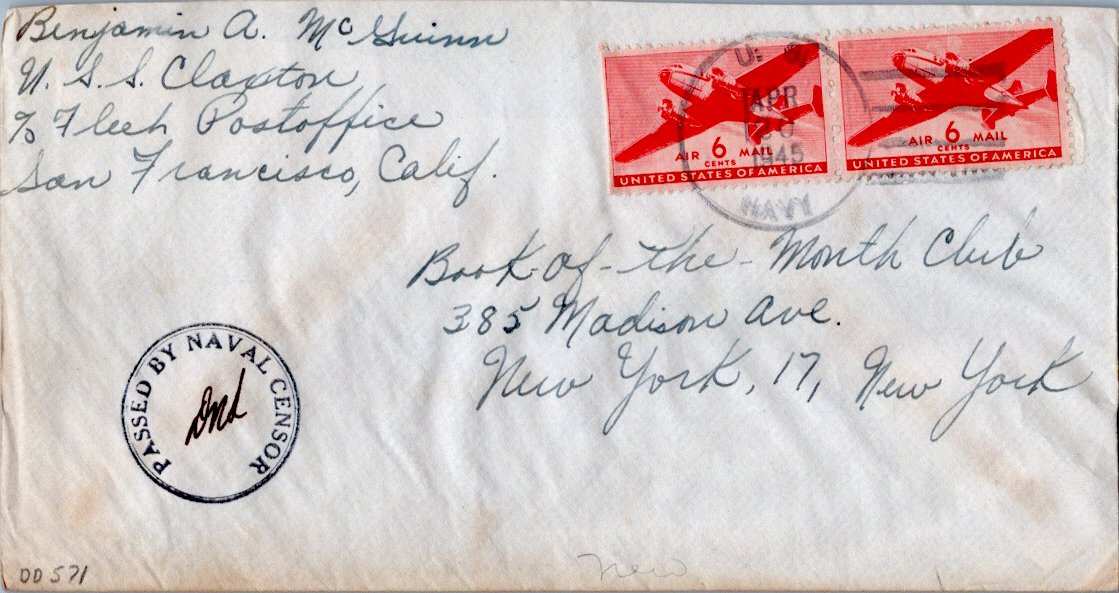 Benjamin A. McGuinn
U. S. S. Claxton
% Fleet Postoffice
San Francisco, Calif.
U. S.
APR
1945
NAVY
AIR 6 MAIL
CENTS
UNITED STATES OF AMERICA
AIR 6 MAIL
CENTS
UNITED STATES OF AMERICA
Book-of-the-Month Club
385 Madison Ave.
New York, 17, New York
PASSED BY NAVAL CENSOR
DD 571
new